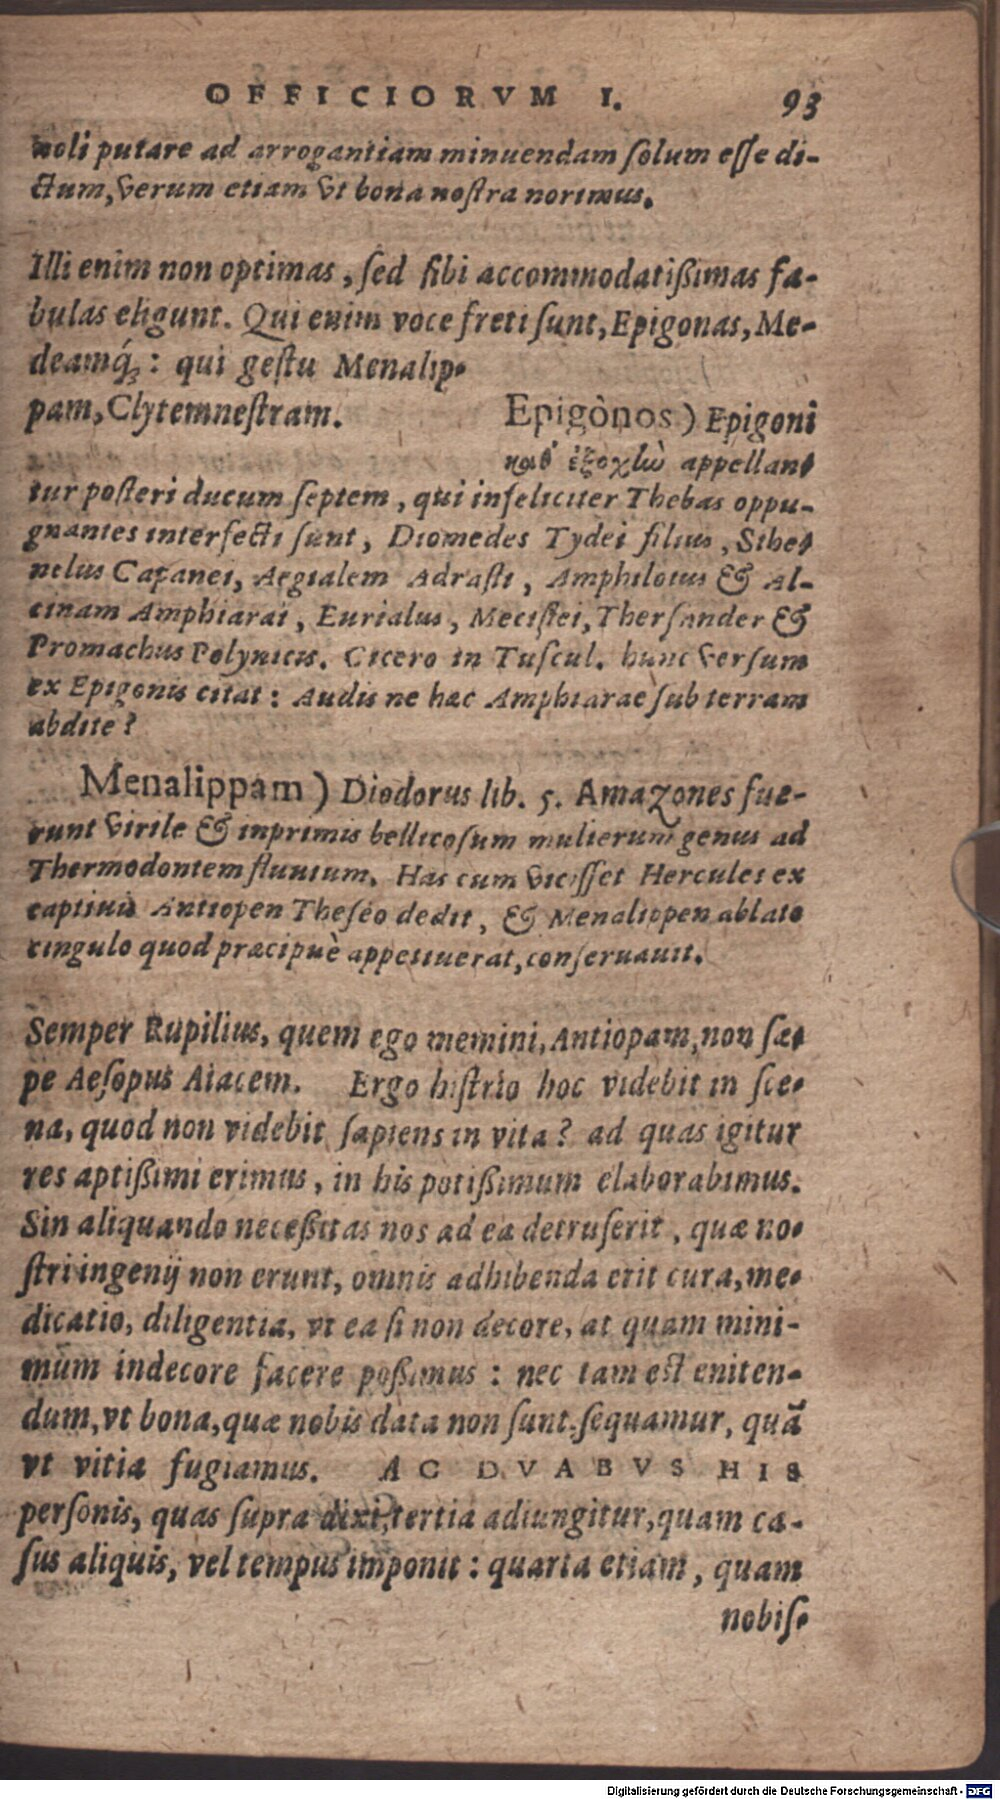 OFFICIORVM I. 93
noli putare ad arrogantiam minuendam ſolum eſſe di-
ctum, verum etiam vt bona noſtra norimus.
Illi enim non optimas, ſed ſibi accommodatißimas fa-
bulas eligunt. Qui enim voce freti ſunt, Epigonas, Me-
deamq́;: qui geſtu Menalip-
pam, Clytemneſtram.
Epigònos) Epigoni
καθ' ἐξοχὼ appellan-
tur poſteri ducum ſeptem, qui infeliciter Thebas oppu-
gnantes interfecti ſunt, Diomedes Tydei filius, Sthe-
nelus Capanei, Aegialem Adraſti, Amphilotus & Al-
cinam Amphiarai, Eurialus, Meciſtei, Therſander &
Promachus Polynicis. Cicero in Tuſcul. hunc verſum
ex Epigonis citat: Audis ne hæc Amphiarae ſub terram
abdite?
Menalippam) Diodorus lib. 5. Amazones fue-
runt virile & inprimis bellicoſum mulierum genus ad
Thermodontem fluuium. Has cum viciſſet Hercules ex
captiuis Antiopen Theſeo dedit, & Menalippen ablato
cingulo quod præcipuè appetiuerat, conſeruauit.
Semper Rupilius, quem ego memini, Antiopam, non ſæ-
pe Aeſopus Aiacem. Ergo hiſtrio hoc videbit in ſce-
na, quod non videbit ſapiens in vita? ad quas igitur
res aptißimi erimus, in his potißimum elaborabimus.
Sin aliquando neceßitas nos ad ea detruſerit, quæ no-
ſtri ingenij non erunt, omnis adhibenda erit cura, me-
dicatio, diligentia, vt ea ſi non decore, at quam mini-
mùm indecore facere poßimus: nec tam eſt eniten-
dum, vt bona, quæ nobis data non ſunt, ſequamur, quã
vt vitia fugiamus. AC DVABVS HIS
perſonis, quas ſupra dixi, tertia adiungitur, quam ca-
ſus aliquis, vel tempus imponit: quarta etiam, quam
nobiſ-
Digitalisierung gefördert durch die Deutsche Forschungsgemeinschaft - DFG